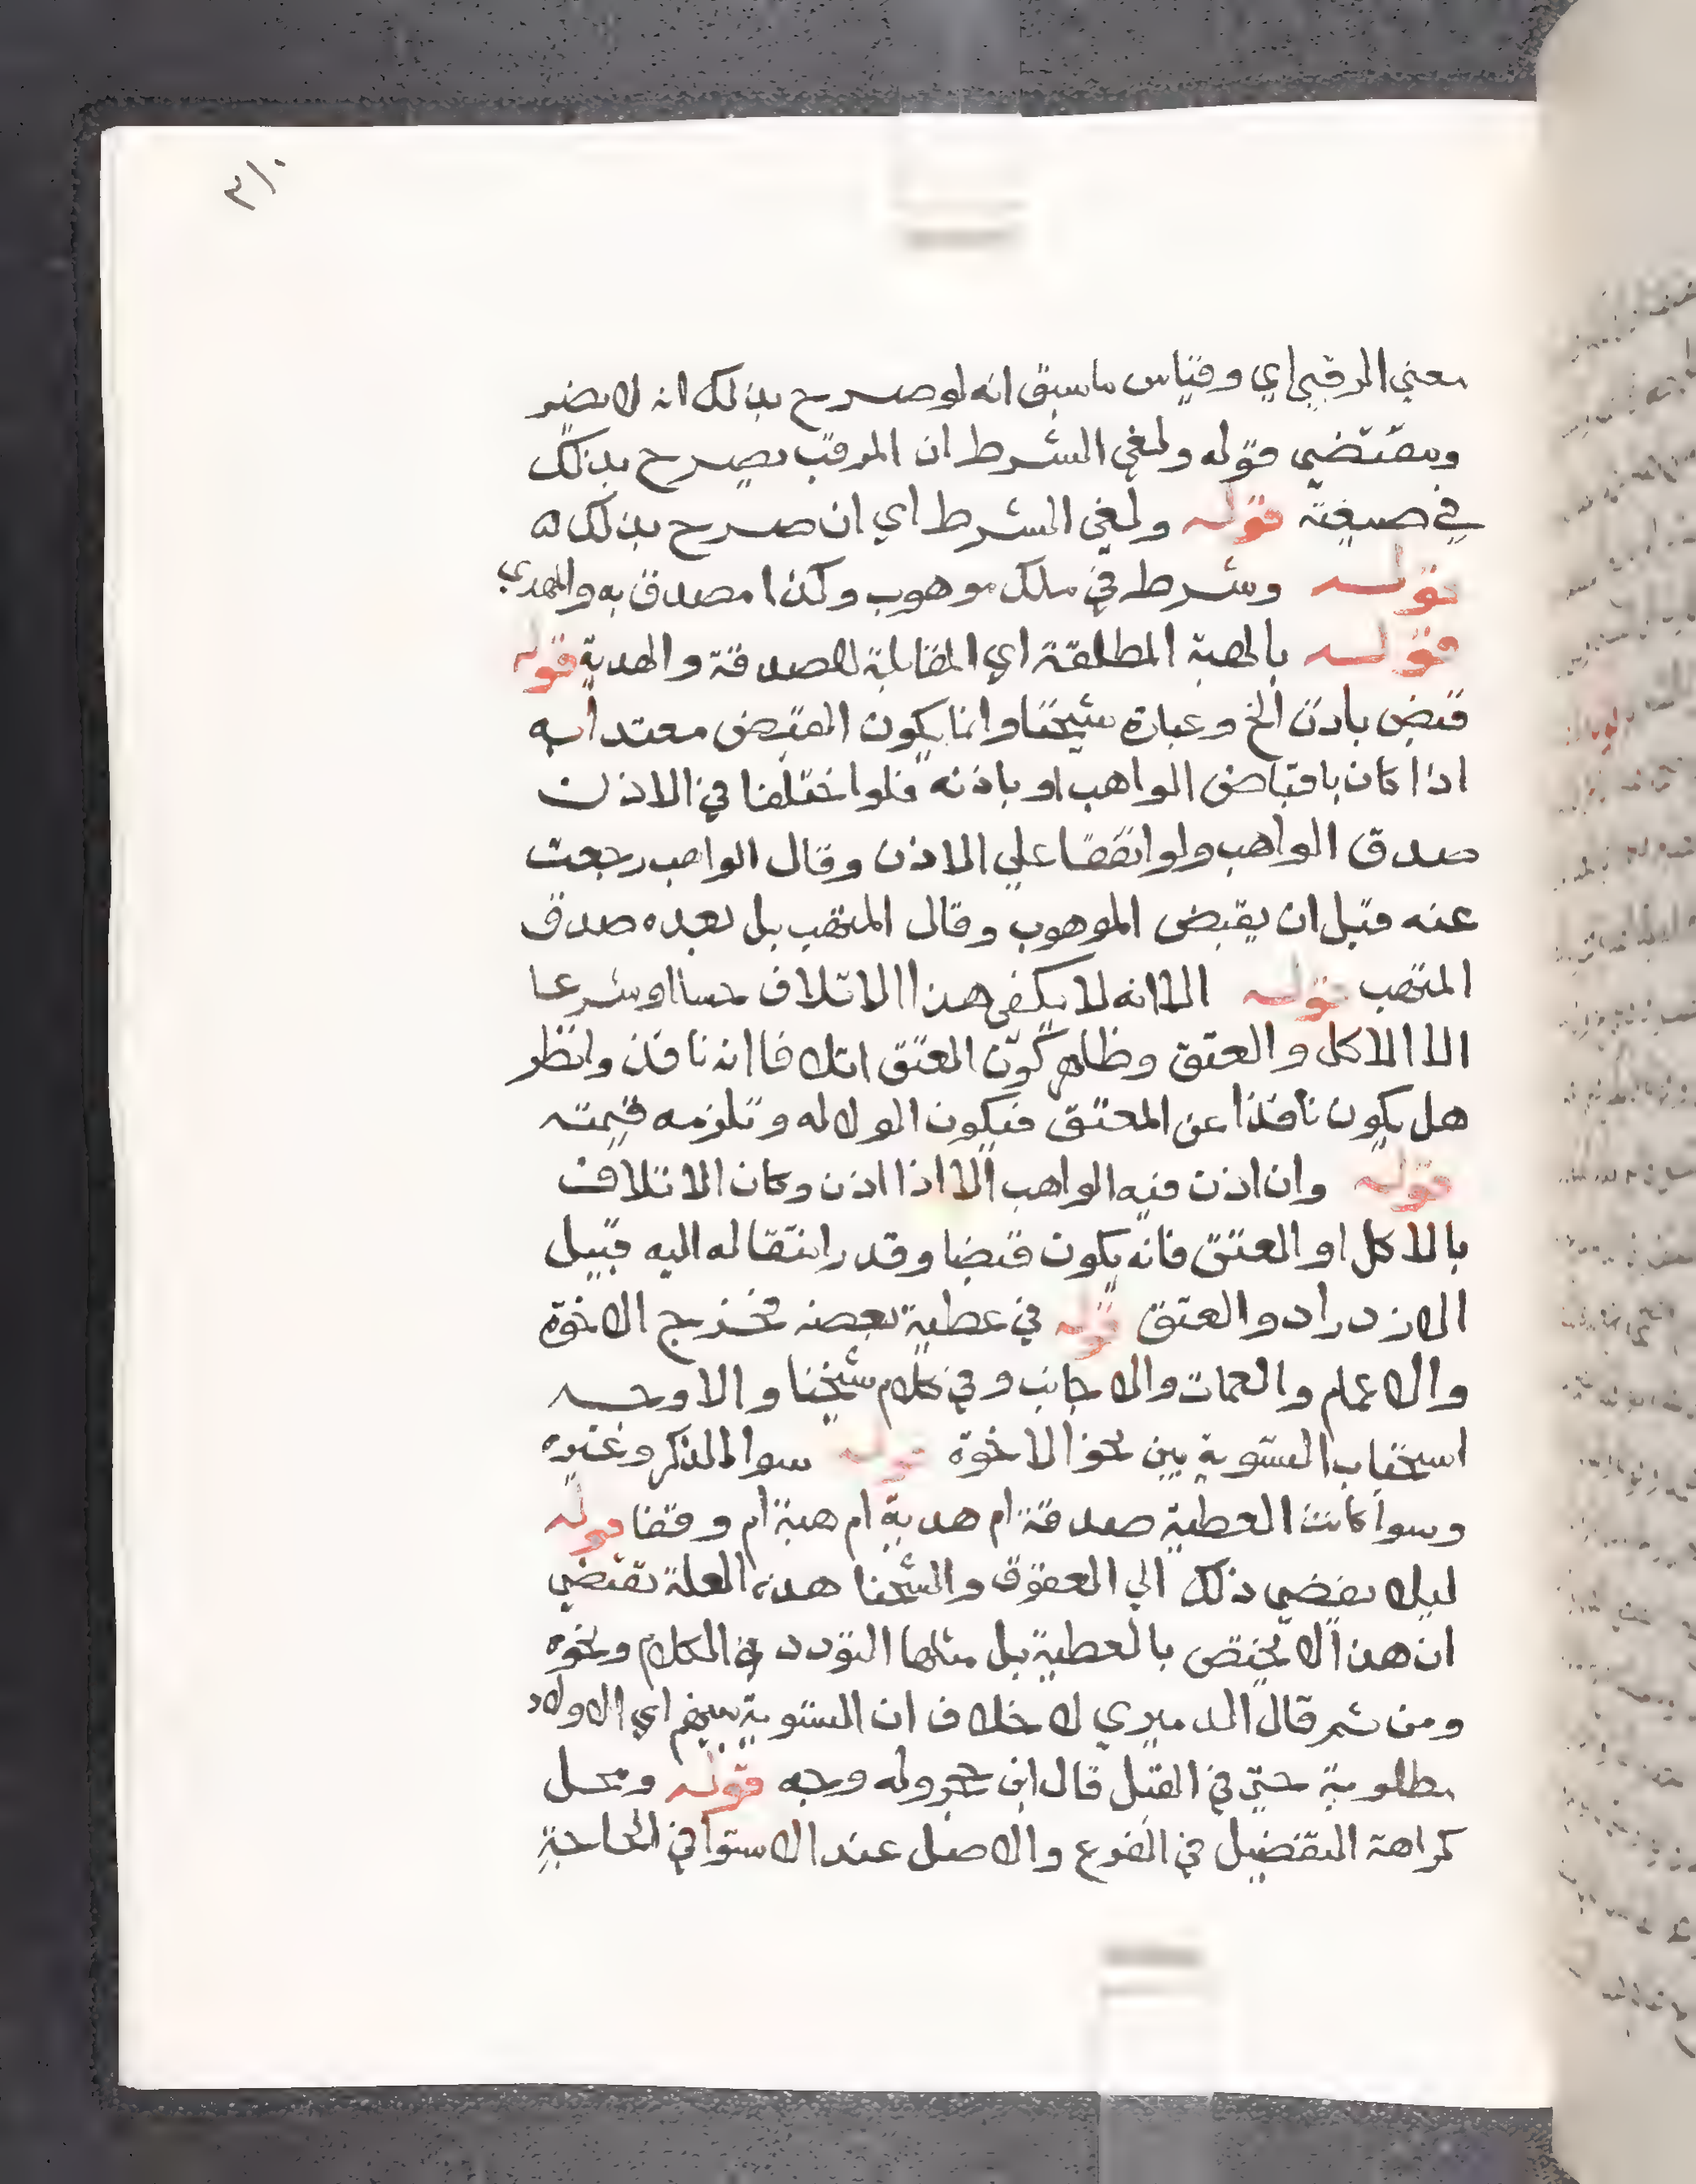 ٣١٠
معني الرقبي اي وقياس ما سبق انه لو صرح بذلك انه لا يضر
ومقتضي قوله ولغي الشرط ان المرقب يصرح بذلك
في صيغته قوله ولغي الشرط اي ان صرح بذلك ه
قوله وشرط في ملك موهوب وكذا مصدق به والمهدي
قوله بالهبة المطلقة اي المقابلة للصدقة والهدية قوله
قبض باذن الخ وعبارة شيخنا وانما يكون القبض معتدا به
اذا كان باقباض الواهب او باذنه فلو اختلفا في الاذن
صدق الواهب ولو اتفقا علي الاذن وقال الواهب رجعت
عنه قبل ان يقبض الموهوب وقال المتهب بل بعده صدق
المتهب قوله الا انه لا يكفي هذا الاتلاف حسا او شرعا
الا الاكل والعتق وظاهر كون العتق اتلافا انه نافذ وانظر
هل يكون نافذا عن المعتق فيكون الولا له وتلزمه قيمته
قوله وان اذن فيه الواهب الا اذا اذن وكان الاتلاف
بالاكل او العتق فانه يكون قبضا وقدر انتقاله اليه قبيل
الازدراد والعتق قوله في عطية بعضه فخرج الاخوة
والاعمام والعمات والاجانب وفي كلام شيخنا والاوجه
استحباب التسوية بين نحو الاخوة قوله سوا الذكر وغيره
وسوا كانت العطية صدقة ام هدية ام هبة ام وقفا قوله
ليلا يفضي ذلك الي العقوق والشحنا هذه العلة تقتضي
ان هذا لا يختص بالعطية بل مثلها التودد في الكلام ونحوه
ومن ثم قال الدميري لا خلاف ان التسوية بينهم اي الاولاد
مطلوبة حتي في القبل قال ابن حجر وله وجه قوله ومحل
كراهة التفضيل في الفرع والاصل عند الاستوا في الحاجة